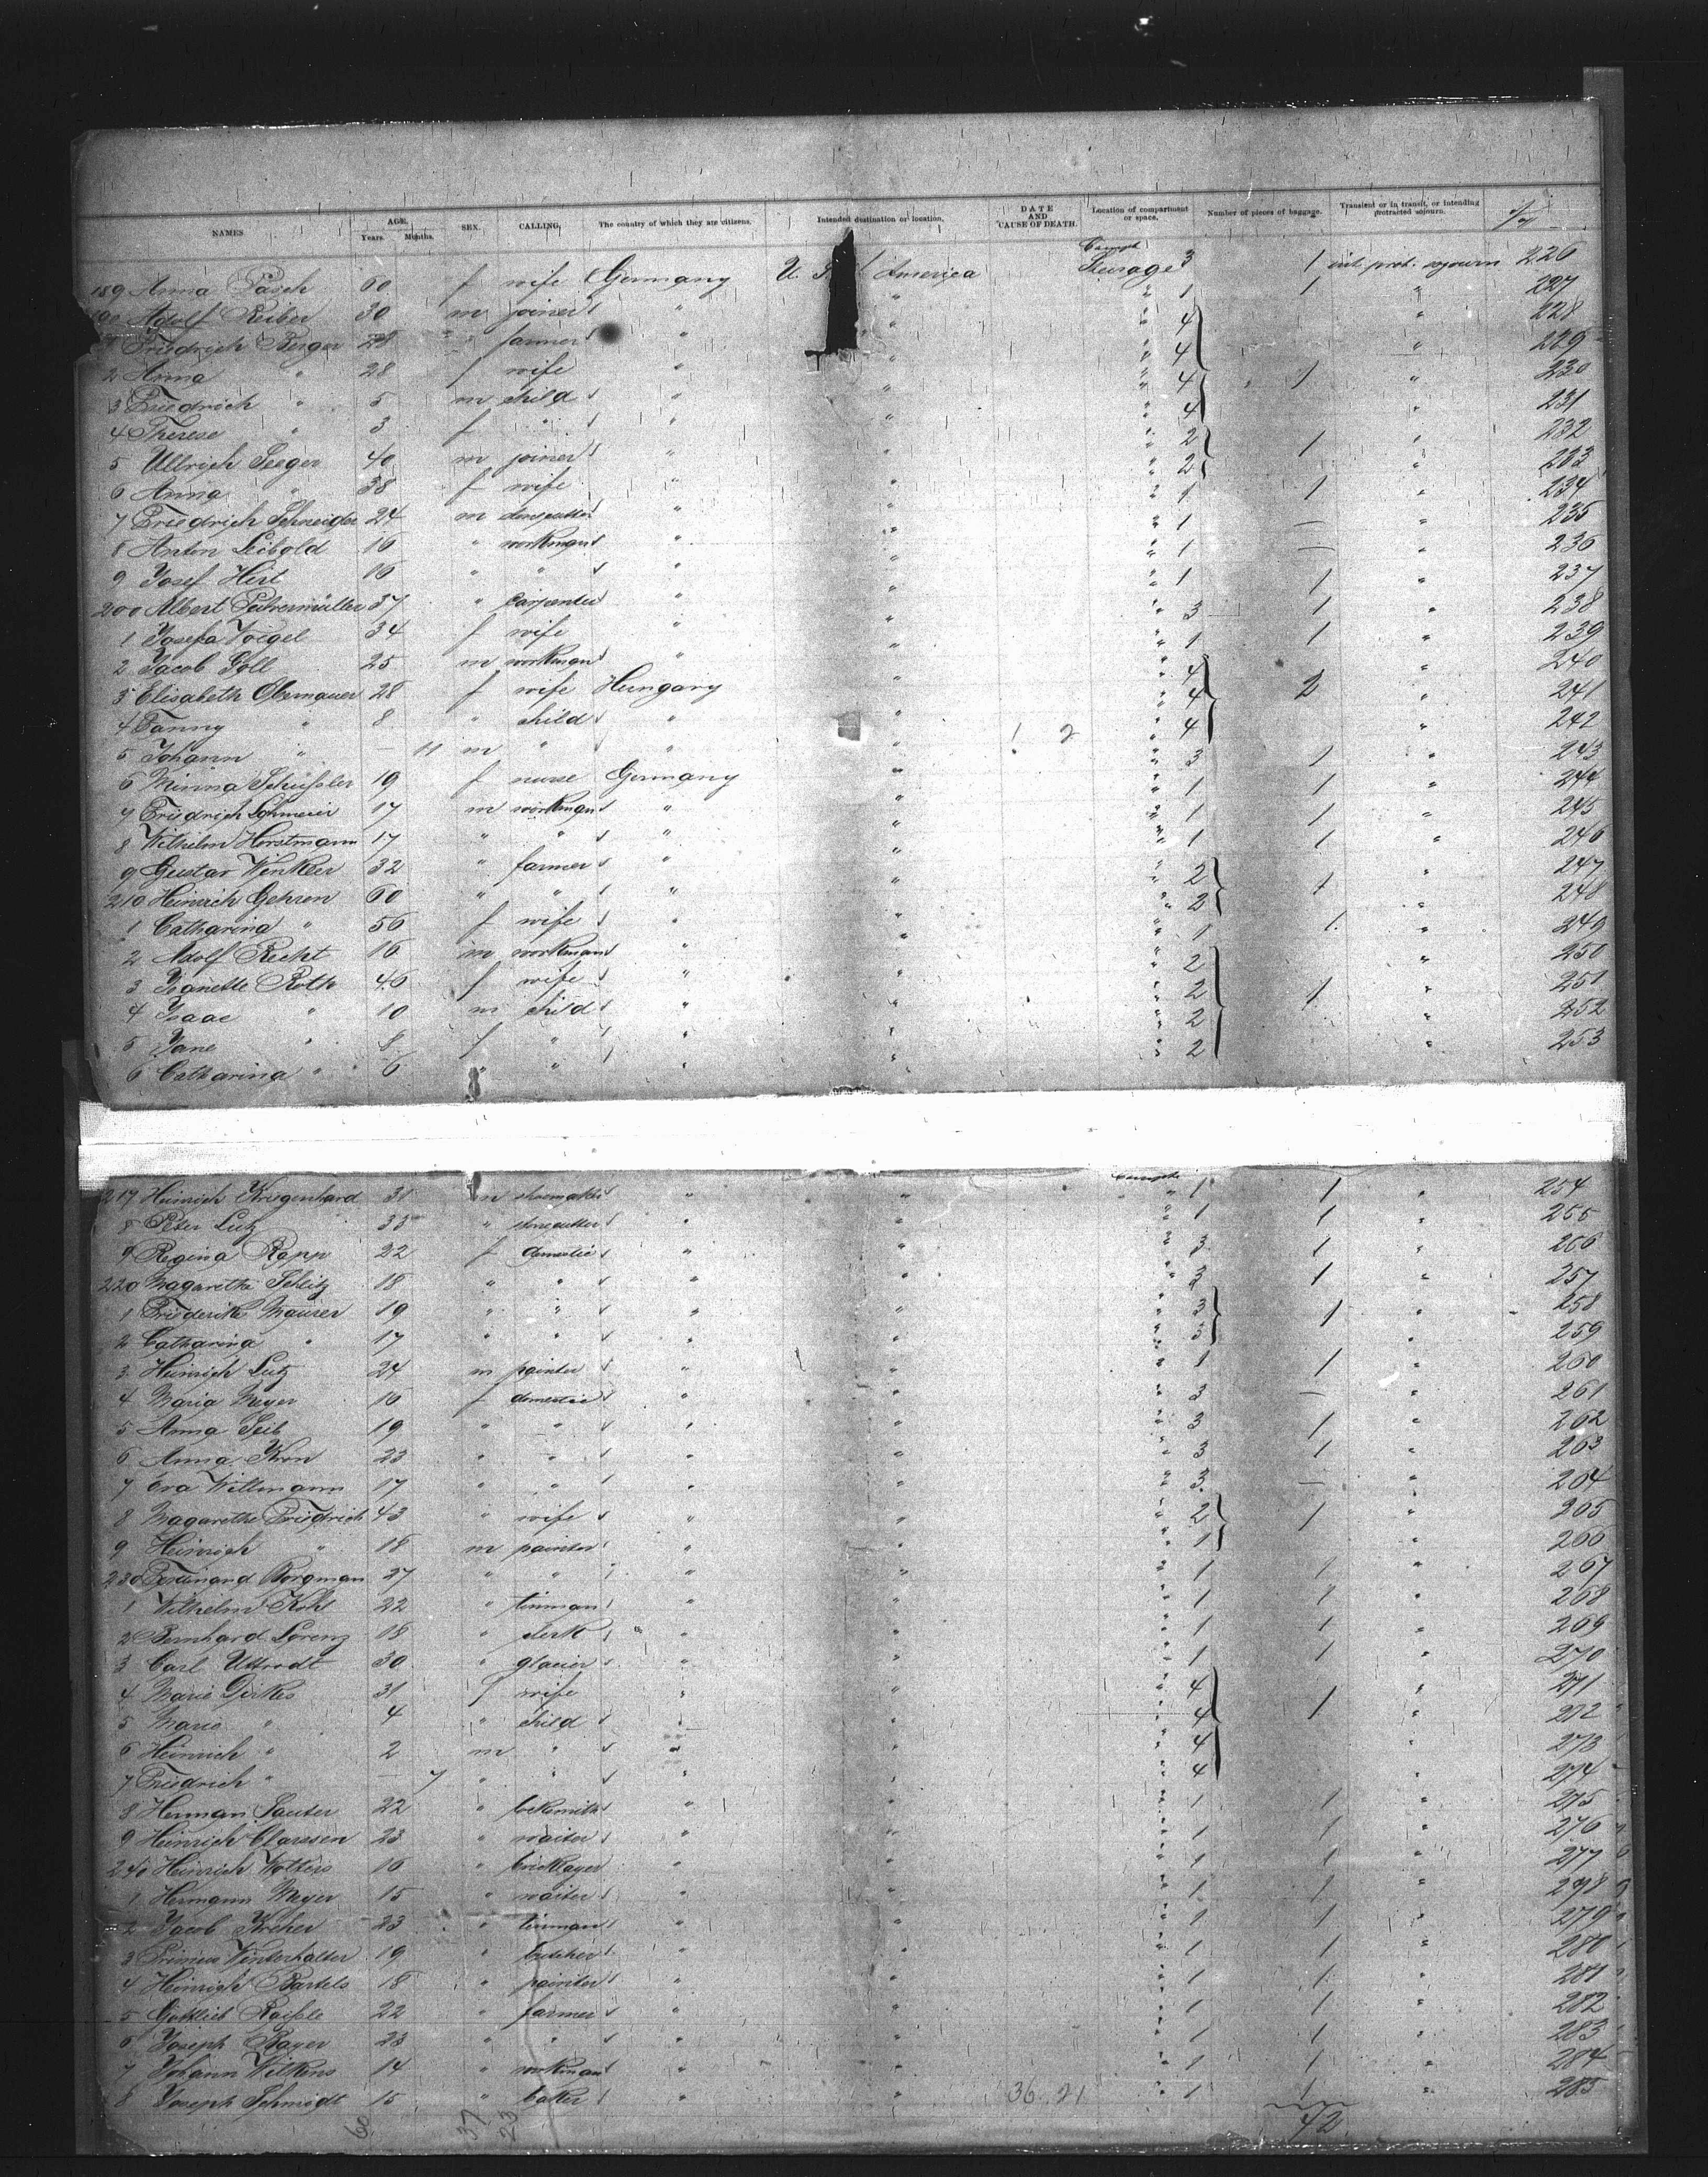 NAMES. AGE. Years. Months. SEX. CALLING. The country of which they are citizens. Intended destination or location. DATE AND CAUSE OF DEATH. Location of compartment or space. Number of pieces of baggage. Transient or in transit, or intending protracted sojourn.
189 Anna Pasch 60 f wife Germany U. America Steerage 3 1 int. prot. sojourn 226
Adolf Reiber 30 m joiner " " " 1 1 " 227
Friedrich Berger 28 " farmer " " " 4 " 228
2 Anna " 28 f wife " " 4 " 229
3 Friedrich " 5 m child " " " 4 1 " 230
4 Therese " 3 f " " " " 4 " 231
5 Ullrich Seeger 40 m joiner " " " 2 1 " 232
6 Anna " 38 f wife " " " 2 " 233
7 Friedrich Schneider 24 m " " " 1 1 " 234
8 Anton Leibold 16 " workman " " " 1 — " 235
9 Josef Hirt 16 " " " " " 1 — " 236
200 Albert 37 " carpenter " " " 1 1 " 237
1 Josefa Voigel 34 f wife " " " 3 1 " 238
2 Jacob Goll 25 m workman " " " 1 1 " 239
3 Elisabeth Obermauer 28 f wife Hungary " " 4 " 240
4 Fanny " 8 " child " " " 4 2 " 241
5 Johann " — 11 m " " " " 4 " 242
6 Minna Schüssler 19 f nurse Germany " " 3 1 " 243
7 Friedrich 17 m workman " " " 1 1 " 244
8 Wilhelm Horstmann 17 " " " " " 1 1 " 245
9 Gustav Winkler 32 " farmer " " " 1 1 " 246
210 Heinrich Gehron 60 " " " " " 2 1 " 247
1 Catharina " 56 f wife " " " 2 " 248
2 Adolf Recht 16 m workman " " " 1 1 " 249
3 Jeanette Roth 46 f wife " " " 2 " 250
4 Isaac " 10 m child " " " 2 1 " 251
5 Jane " 8 f " " " " 2 " 252
6 Catharina " 6 " " " " " 2 " 253
217 Heinrich Kriegenhard 31 m shoemaker " " " 1 1 " 254
8 Peter Lutz 33 " stonecutter " " " 1 1 255
9 Regina Rapp 22 f domestic " " " 3 1 " 256
220 Magarethe Schlitz 18 " " " " " 3 1 " 257
1 Friederike Maurer 19 " " " " " 3 1 " 258
2 Catharina " 17 " " " " " 3 " 259
3 Heinrich Lutz 24 m painter " " " 1 1 " 260
4 Maria Meyer 16 f domestic " " " 3 — " 261
5 Anna Seib 19 " " " " " 3 1 " 262
6 Anna Kron 23 " " " " " 3 1 " 263
7 Eva Wittmann 17 " " " " " 3 — " 264
8 Magarethe Friedrich 43 " wife " " " 2 1 " 265
9 Heinrich " 18 m painter " " " 1 266
230 Ferdinand Borgman 27 " " " " " 1 1 " 267
1 Wilhelm Kohl 22 " tinman " " 1 1 " 268
2 Bernhard Lorenz 18 " clerk " " 1 1 " 269
3 Carl Uttrodt 30 " glacier " " 1 1 " 270
4 Marie Dirkes 31 f wife " " " 4 " 271
5 Marie " 4 " child " " 4 1 " 272
6 Heinrich " 2 m " " " 4 " 273
7 Friedrich " — 7 " " " " 4 " 274
8 Herman Sauter 22 " locksmith " " 1 1 " 275
9 Heinrich Clarssen 23 " waiter " " " 1 1 " 276
240 Heinrich Wolters 16 " bricklayer " " " 1 1 " 277
1 Hermann Meyer 15 " waiter " " " 1 1 " 278
2 Jacob Kreher 23 " tinman " " " 1 1 " 279
3 Primus Winterhalter 19 " butcher " " " 1 1 " 280
4 Heinrich Bartels 18 " painter " " " 1 1 " 281
5 Gottlieb 22 " farmer " " " 1 1 " 282
6 Joseph Bayer 23 " " " " " 1 1 " 283
7 Johann Wilkens 14 " workman " " " 1 1 " 284
8 Joseph Schmidt 15 " baker " " 36 21 " 1 1 " 285
60 37 23 42